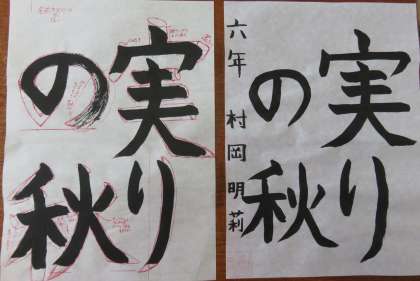 実り
の秋
実り
の秋
六年 村岡明莉